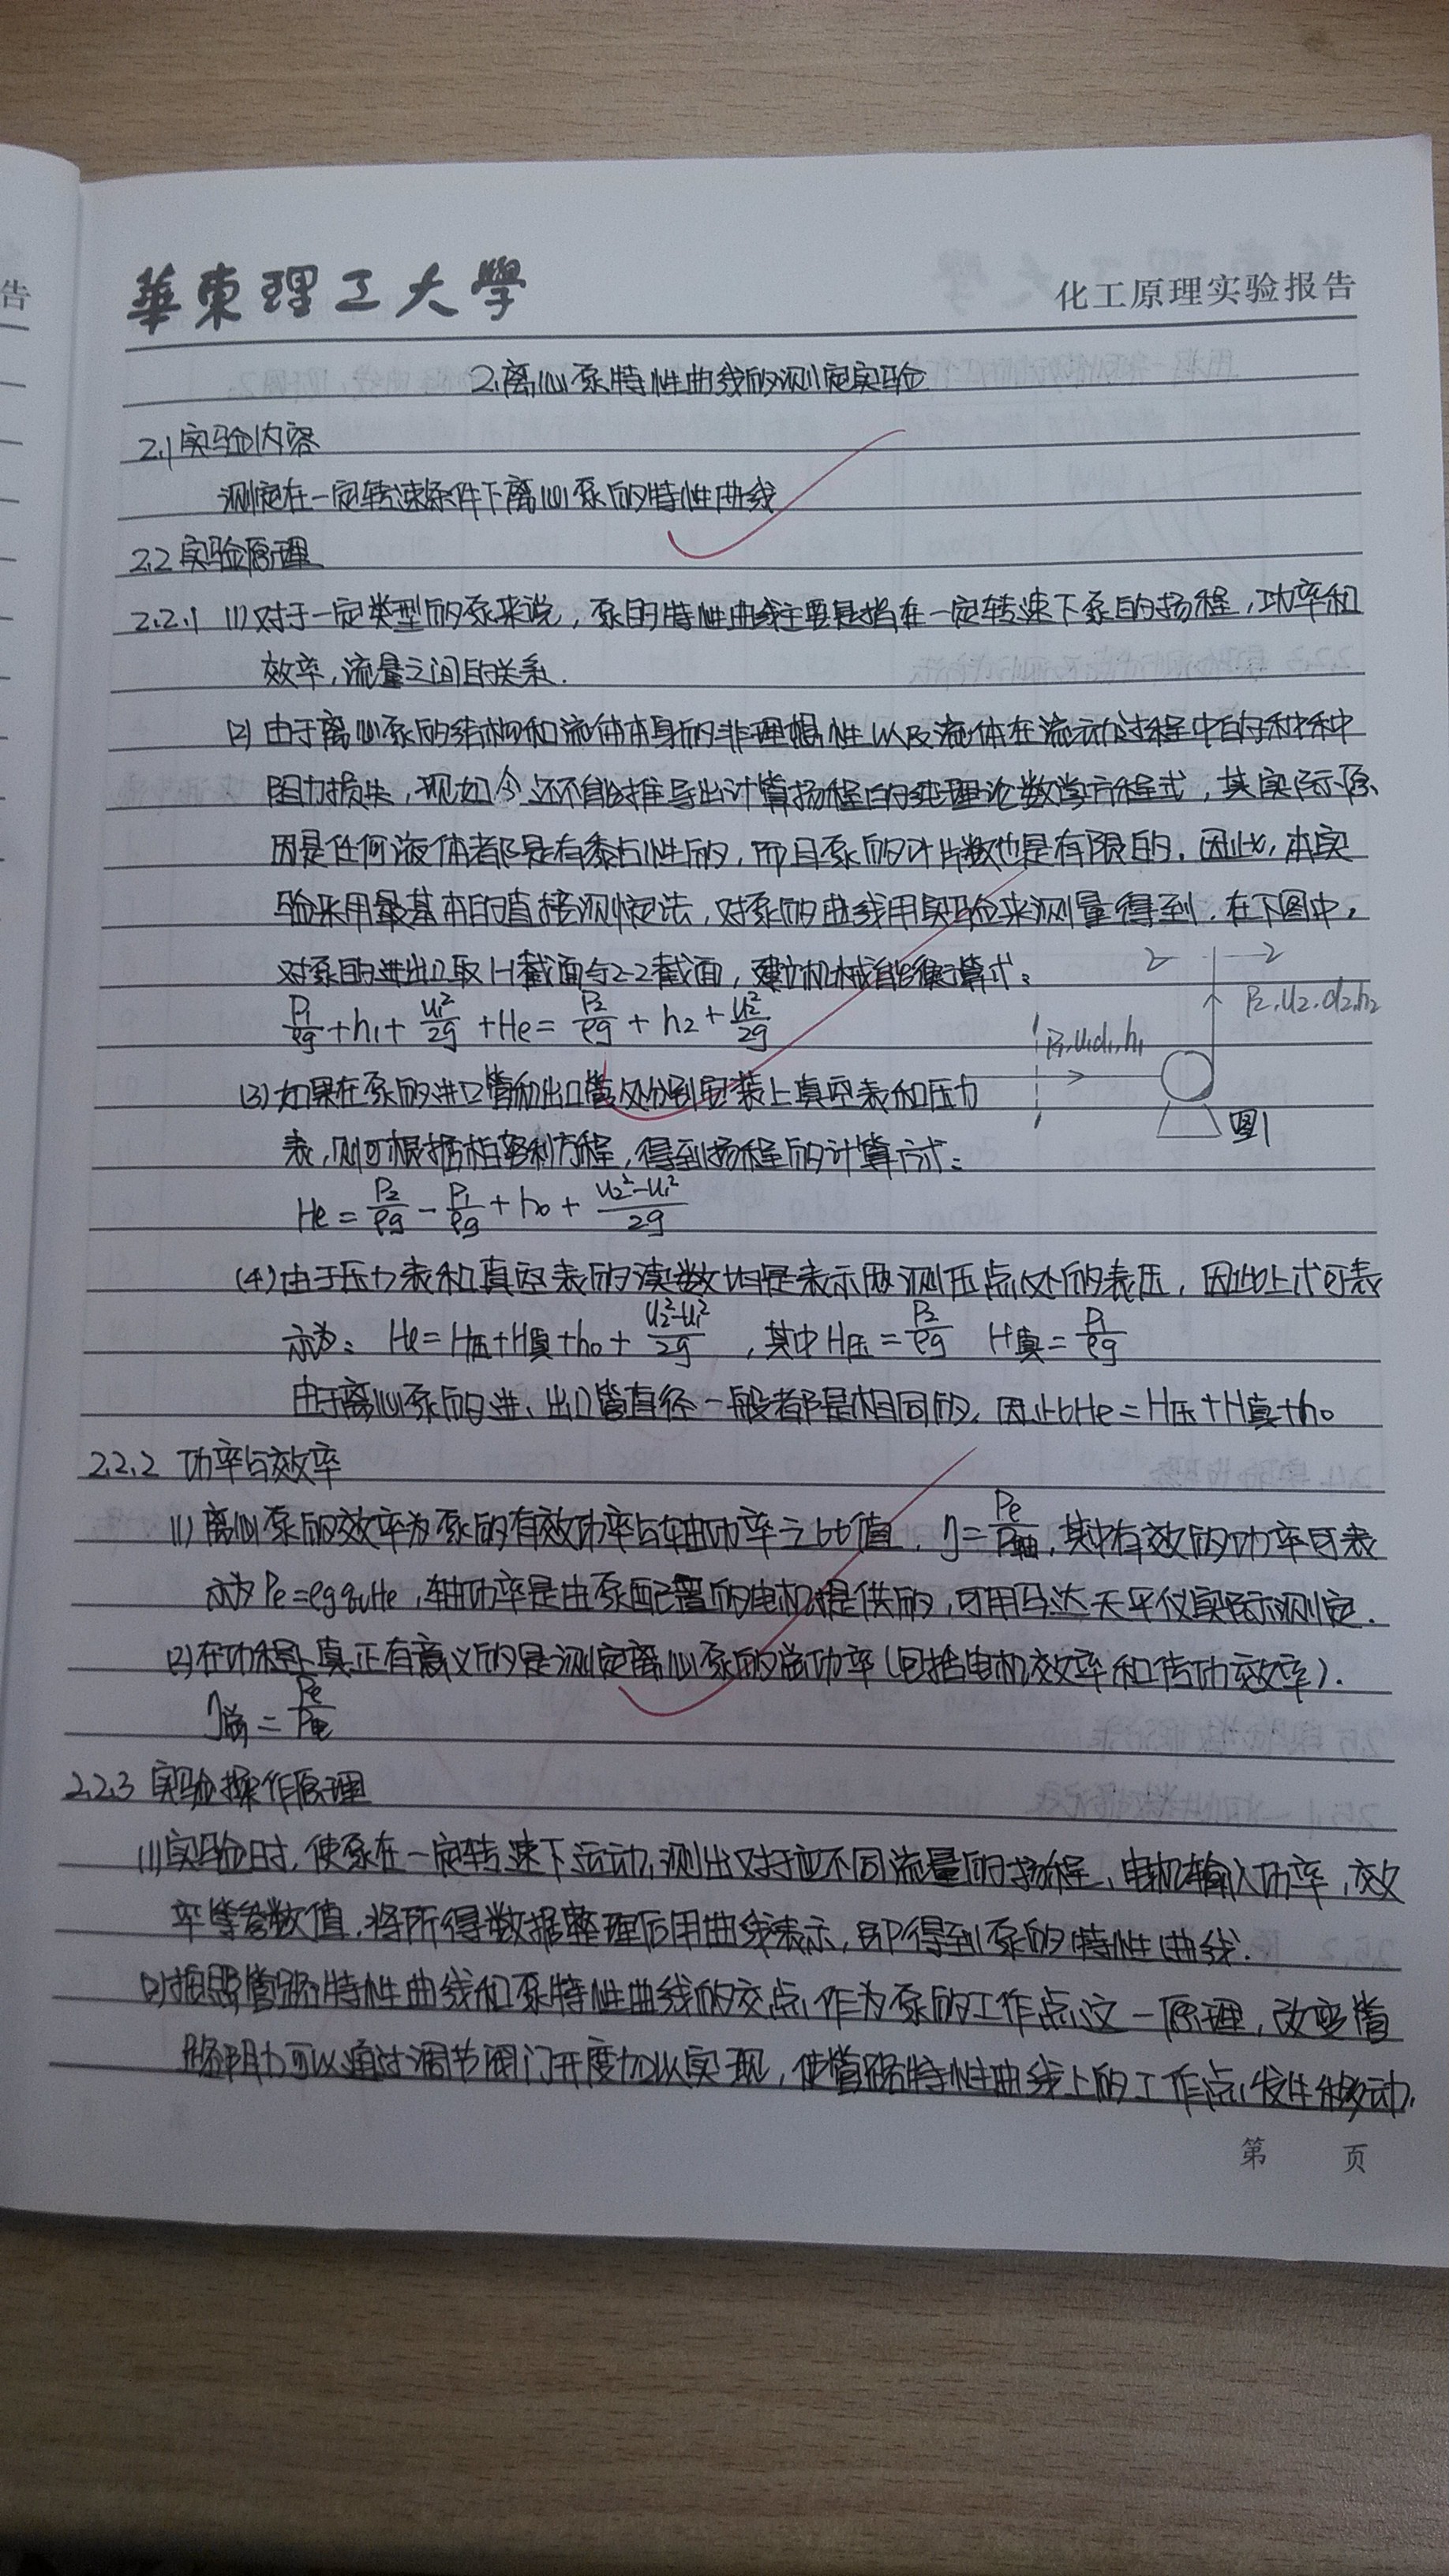 告
華東理工大學
化工原理实验报告
2.离心泵特性曲线的测定实验
2.1实验内容
测定在一定转速条件下离心泵的特性曲线
2.2实验原理
2.2.1 (1)对于一定类型的泵来说，泵的特性曲线主要是指在一定转速下泵的扬程，功率和
效率，流量之间的关系.
(2)由于离心泵的结构和流体本身的非理想性以及流体在流动过程中的种种
阻力损失，现如今还不能推导出计算扬程的纯理论数学方程式，其实际原
因是任何液体都是有黏性的，而且泵的叶片数也是有限的。因此，本实
验采用最基本的直接测定法，对泵的曲线用实验来测量得到。在下图中，
对泵的进出口取1-1截面与2-2截面，建立机械能衡算式：
P₁/ρg+h₁+u₁²/2g+He=P₂/ρg+h₂+u₂²/2g
2 2
P₂.u₂.d₂.h₂
P₁.u₁d₁.h₁
图1
(3)如果在泵的进口管和出口管处分别安装上真空表和压力
表，则可根据柏努利方程，得到扬程的计算方式：
He=P₂/ρg-P₁/ρg+h₀+u₂²-u₁²/2g
(4)由于压力表和真空表的读数均是表示两测压点处的表压，因此上式可表
示为：He=H压+H真+h₀+u₂²-u₁²/2g，其中H压=P₂/ρg H真=P₁/ρg
由于离心泵的进、出口管直径一般都是相同的，因此He=H压+H真+h₀
2.2.2 功率与效率
(1)离心泵的效率为泵的有效功率与轴功率之比值，η=Pe/P轴，其中有效的功率可表
示为Pe=ρgqᵥHe，轴功率是由泵配置的电机提供的，可用马达天平仪实际测定.
(2)在功程上真正有意义的是测定离心泵的总功率(包括电机效率和传功效率).
η总=Pe/P电
2.2.3 实验操作原理
(1)实验时，使泵在一定转速下运动，测出对应不同流量的扬程、电机输入功率，效
率等参数值，将所得数据整理后用曲线表示，即得到泵的特性曲线.
(2)按照管路特性曲线和泵特性曲线的交点作为泵的工作点这一原理，改变管
路阻力可以通过调节阀门开度加以实现，使管路特性曲线上的工作点发生移动，
第 页